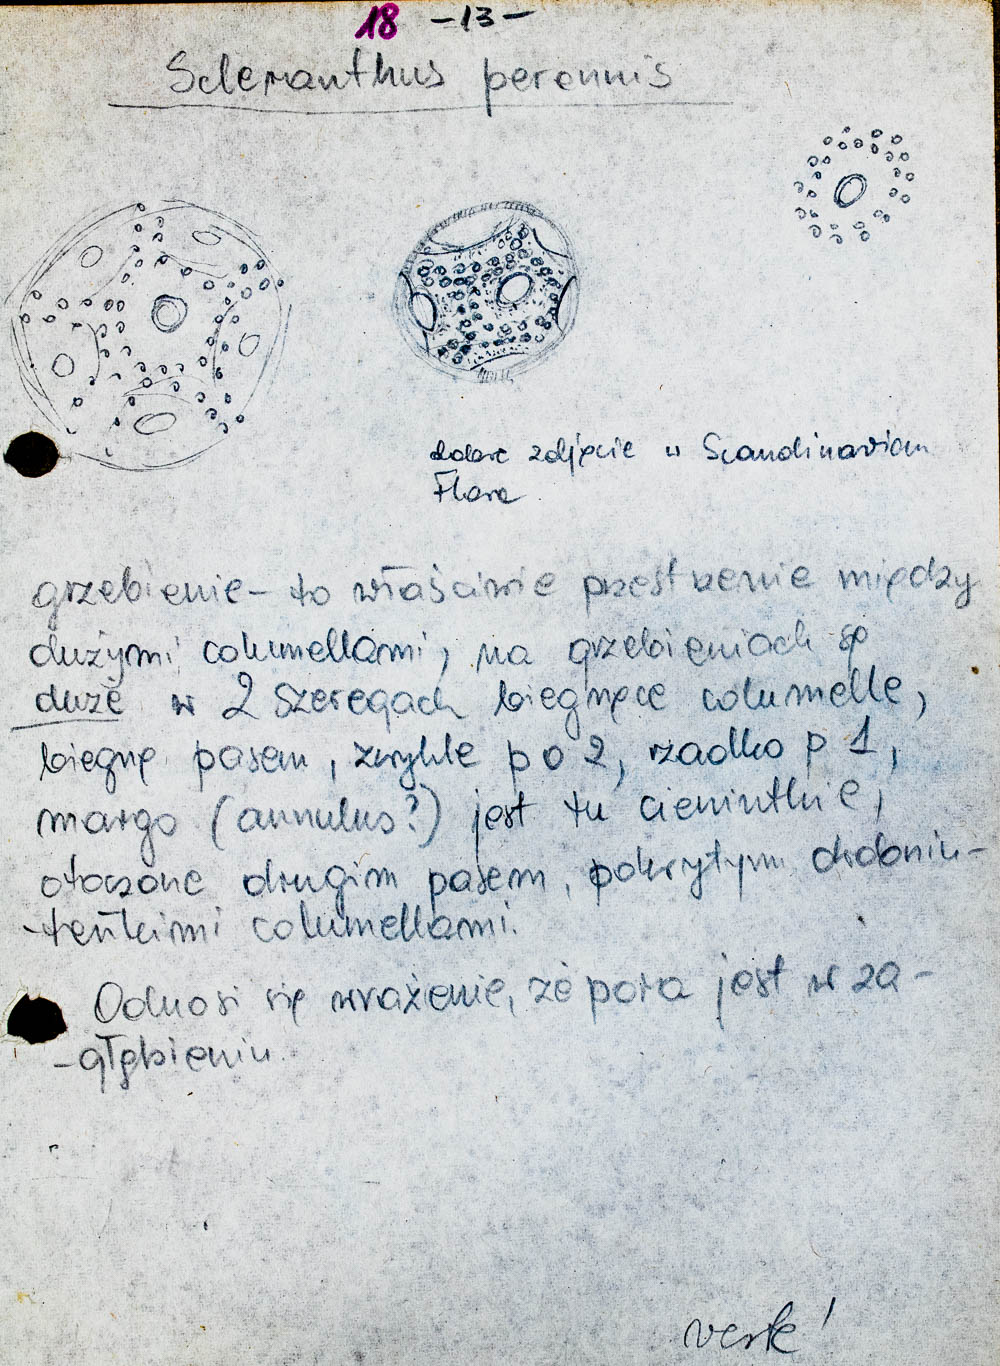 18 -13-
Scleranthus perennis
dobre zdjęcie u Scandinavian
Flora
grzebienie - to właściwie przestrzenie między
dużymi columellami, na grzebieniach są
duże w 2 szeregach biegnące columelle,
biegnę pasem, zwykle po 2, rzadko p 1,
margo (annulus?) jest tu cieniutkie,
otoczone drugim pasem, pokrytym drobniu-
-teńkimi columellami.
Odnosi się wrażenie, że pora jest w za-
-głębieniu.
verte!